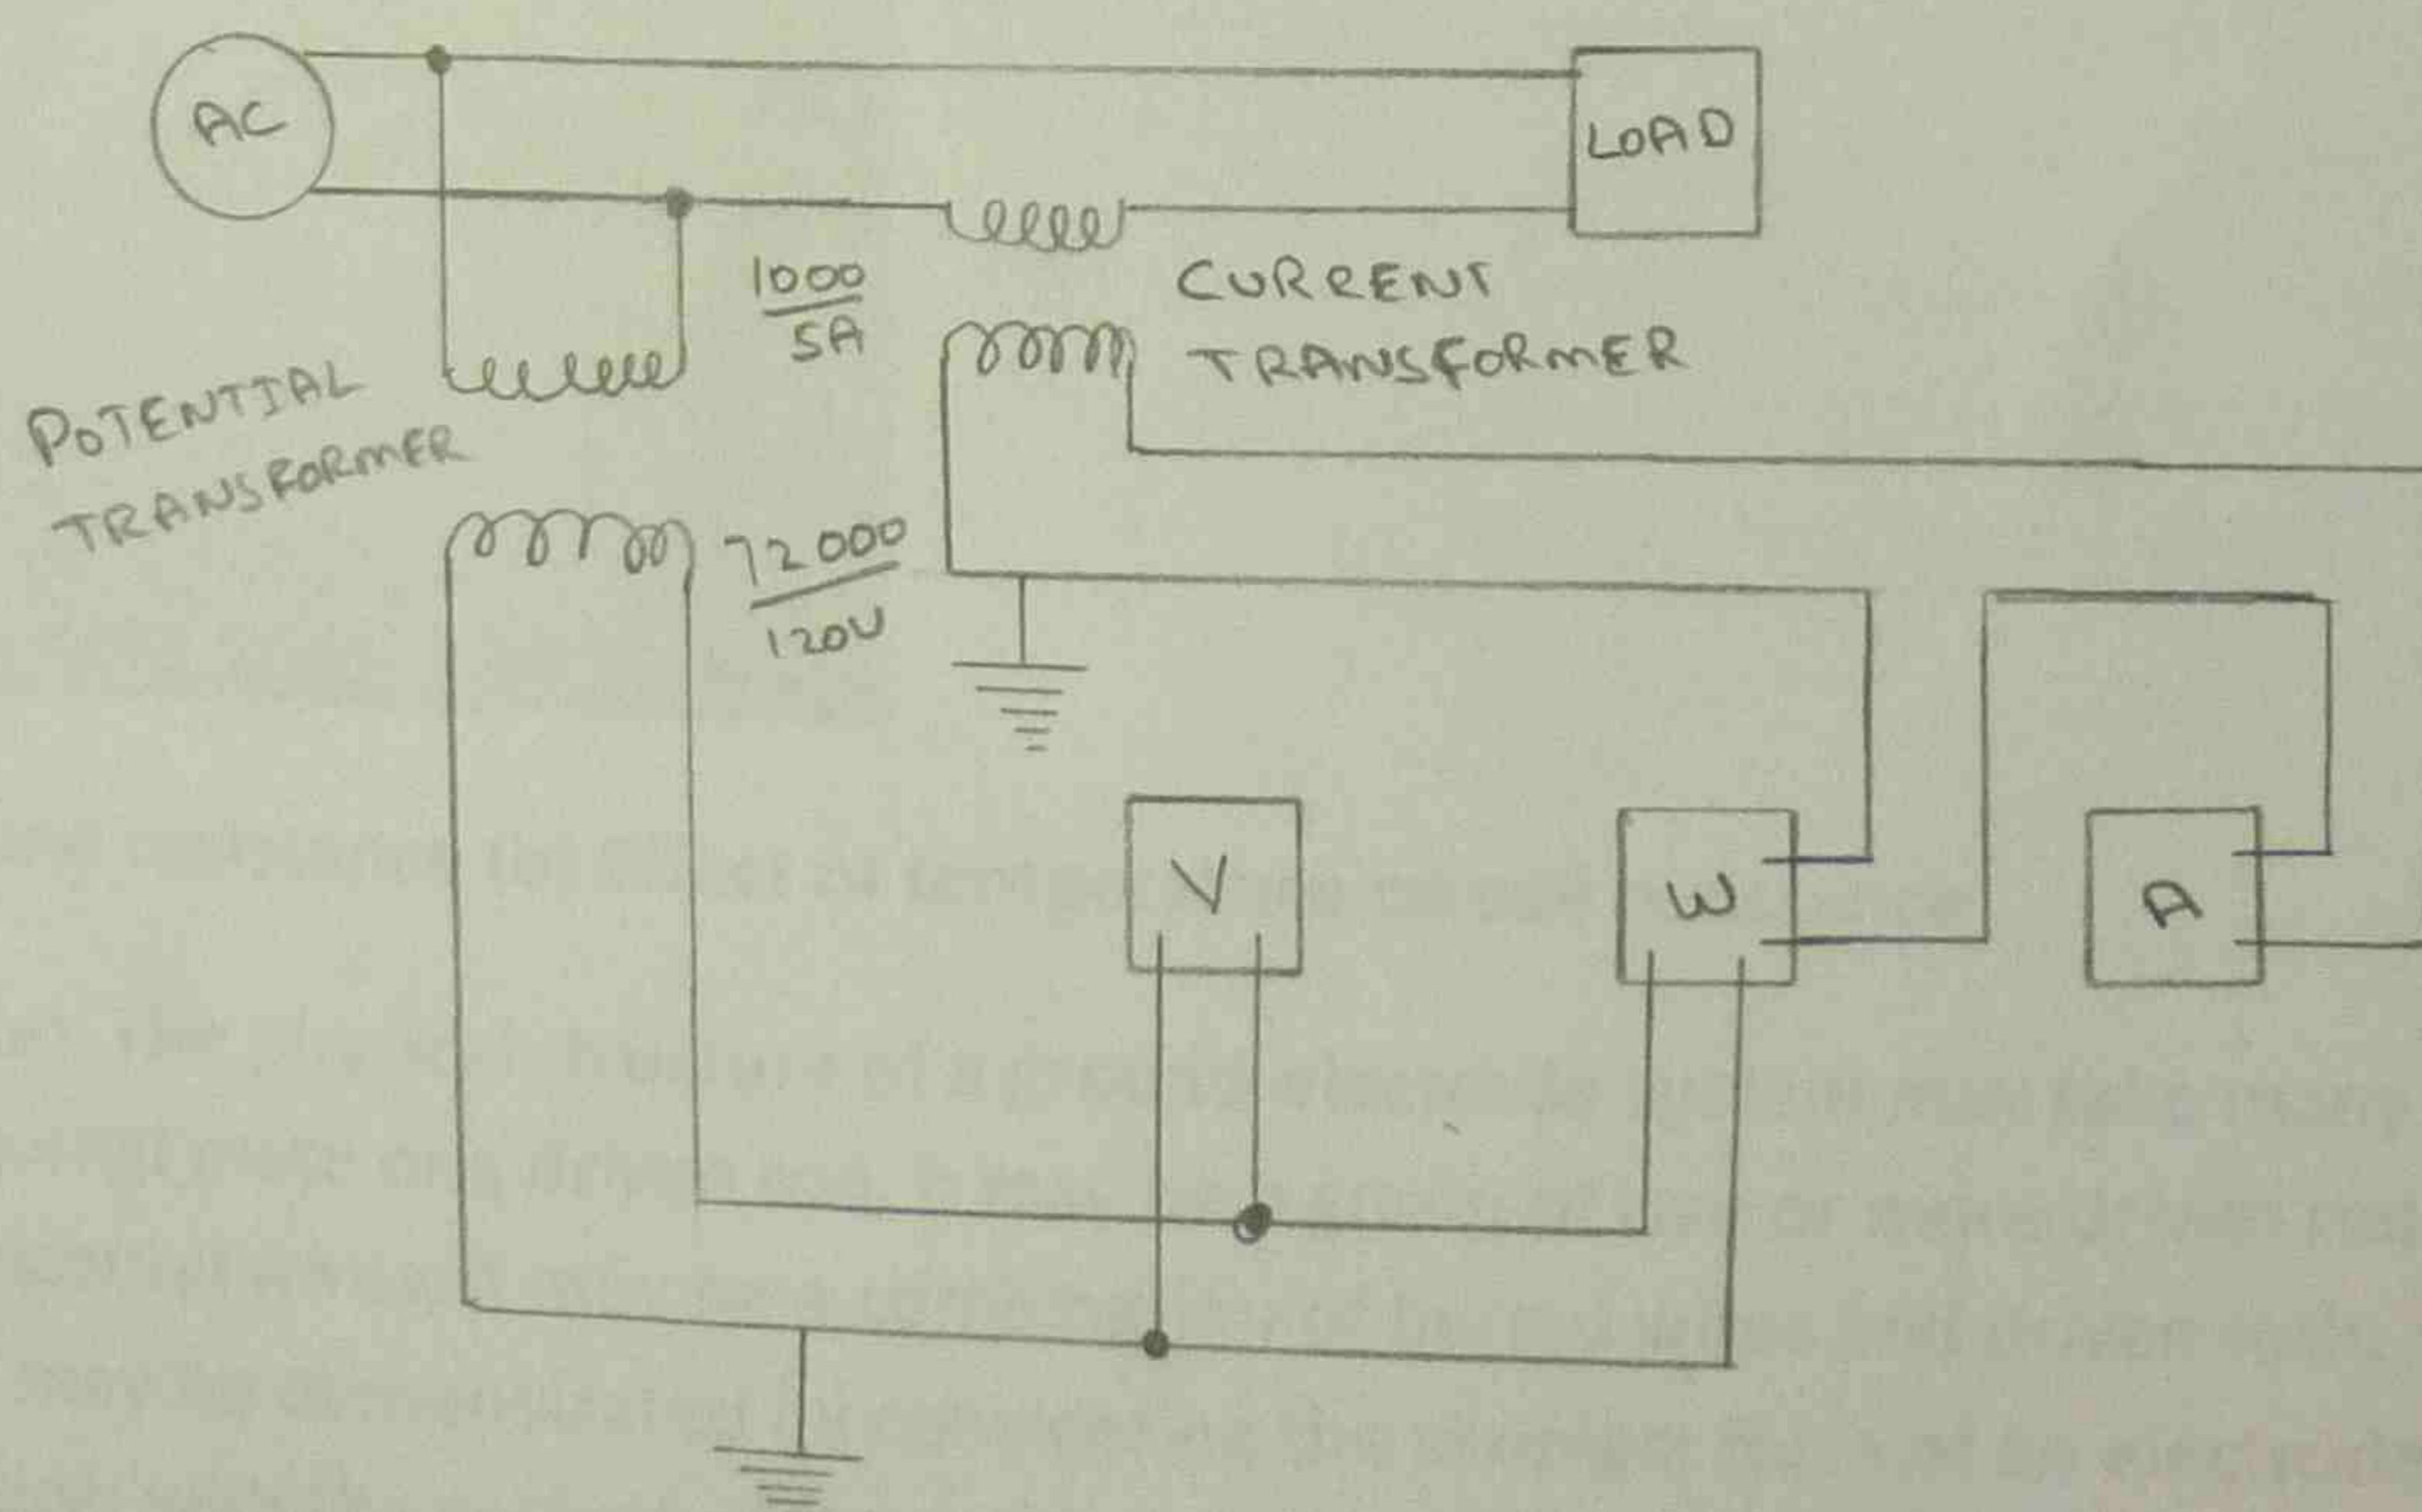 AC
LOAD
1000
5A
CURRENT
TRANSFORMER
POTENTIAL
TRANSFORMER
72000
120V
V
W
A